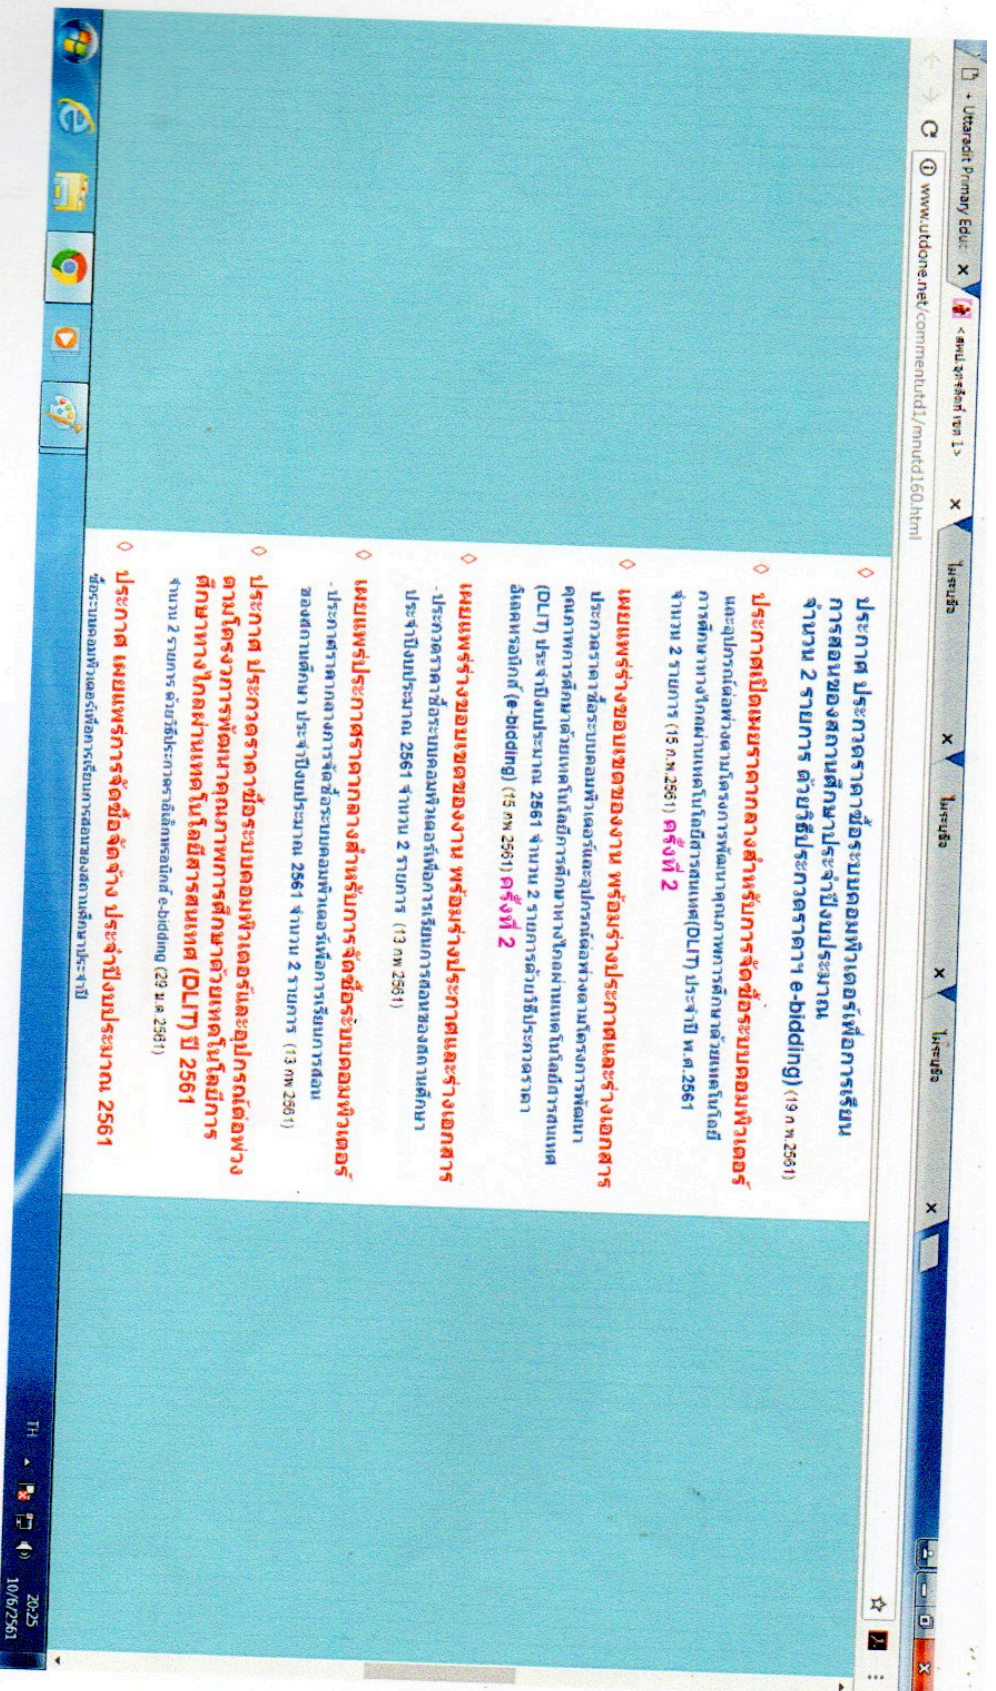 + Uttaradit Primary Educ
<สพป.อุตรดิตถ์ เขต 1>
ไม่ระบุชื่อ
ไม่ระบุชื่อ
ไม่ระบุชื่อ
www.utdone.net/commentutd1/mnutd160.html
ประกาศ ประกวดราคาซื้อระบบคอมพิวเตอร์เพื่อการเรียน
การสอนของสถานศึกษาประจำปีงบประมาณ
จำนวน 2 รายการ ด้วยวิธีประกวดราคาฯ e-bidding) (19 ก.พ.2561)
ประกาศเปิดเผยราคากลางสำหรับการจัดซื้อระบบคอมพิวเตอร์
และอุปกรณ์ต่อพ่วงตามโครงการพัฒนาคุณภาพการศึกษาด้วยเทคโนโลยี
การศึกษาทางไกลผ่านเทคโนโลยีสารสนเทศ(DLIT) ประจำปี พ.ศ.2561
จำนวน 2 รายการ (15 ก.พ.2561) ครั้งที่ 2
เผยแพร่ร่างขอบเขตของงาน พร้อมร่างประกาศและร่างเอกสาร
ประกวดราคาซื้อระบบคอมพิวเตอร์และอุปกรณ์ต่อพ่วงตามโครงการพัฒนา
คุณภาพการศึกษาด้วยเทคโนโลยีการศึกษาทางไกลผ่านเทคโนโลยีสารสนเทศ
(DLIT) ประจำปีงบประมาณ 2561 จำนวน 2 รายการด้วยวิธีประกวดราคา
อิเลคทรอนิกส์ (e-bidding) (15 กพ 2561) ครั้งที่ 2
เผยแพร่ร่างขอบเขตของงาน พร้อมร่างประกาศและร่างเอกสาร
-ประกวดราคาซื้อระบบคอมพิวเตอร์เพื่อการเรียนการสอนของสถานศึกษา
ประจำปีงบประมาณ 2561 จำนวน 2 รายการ (13 กพ 2561)
เผยแพร่ประกาศราคากลางสำหรับการจัดซื้อระบบคอมพิวเตอร์
-ประกาศราคากลางการจัดซื้อระบบคอมพิวเตอร์เพื่อการเรียนการสอน
ของสถานศึกษา ประจำปีงบประมาณ 2561 จำนวน 2 รายการ (13 กพ 2561)
ประกาศ ประกวดราคาซื้อระบบคอมพิวเตอร์และอุปกรณ์ต่อพ่วง
ตามโครงวการพัฒนาคุณภาพการศึกษาด้วยเทคโนโลยีการ
ศึกษาทางไกลผ่านเทคโนโลยีสารสนเทศ (DLIT) ปี 2561
จำนวน 2 รายการ ด้วยวิธีประกวดราอิเล็กทรอนิกส์ e-bidding (29 ม.ค.2561)
ประกาศ เผยแพร่การจัดซื้อจัดจ้าง ประจำปีงบประมาณ 2561
ซื้อระบบคอมพิวเตอร์เพื่อการเรียนการสอนของสถานศึกษาประจำปี
TH
20:25
10/6/2561